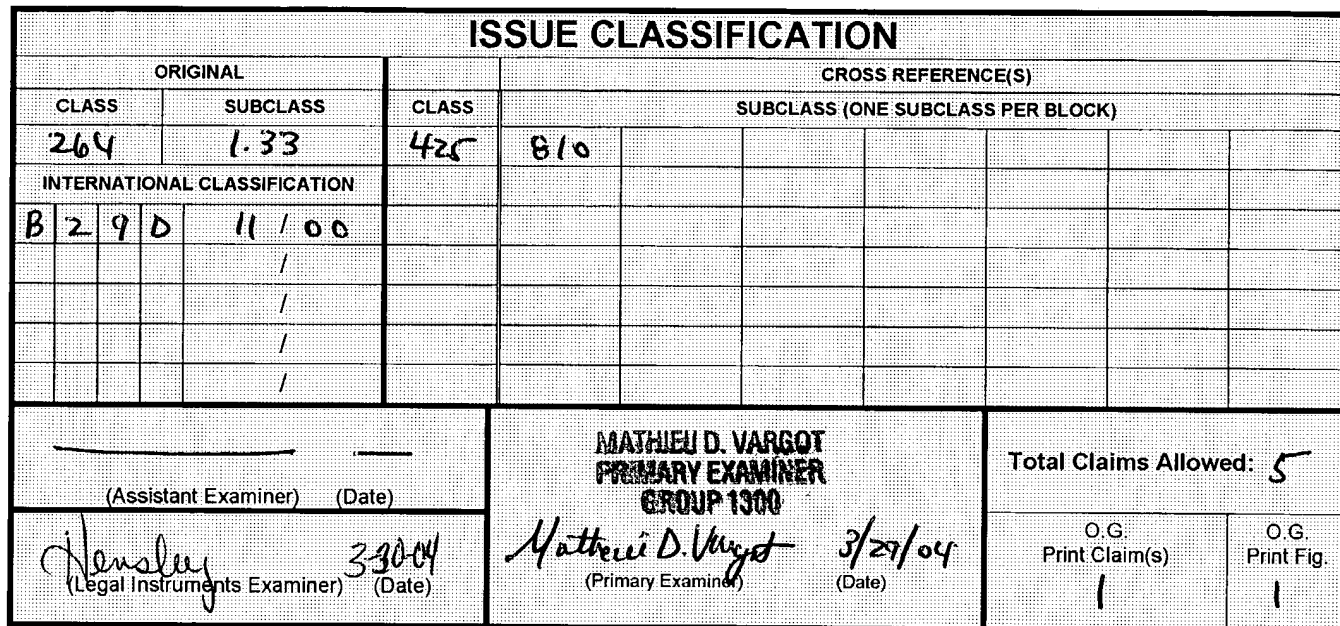 ISSUE CLASSIFICATION
ORIGINAL CROSS REFERENCE(S)
CLASS SUBCLASS CLASS SUBCLASS (ONE SUBCLASS PER BLOCK)
264 1.33 425 810
INTERNATIONAL CLASSIFICATION
B 2 9 D 11 / 00
/
/
/
/
(Assistant Examiner) (Date)
Hensley 3-30-04
(Legal Instruments Examiner) (Date)
MATHIEU D. VARGOT
PRIMARY EXAMINER
GROUP 1300
Mathieu D. Vargot 3/29/04
(Primary Examiner) (Date)
Total Claims Allowed: 5
O.G. O.G.
Print Claim(s) Print Fig.
1 1